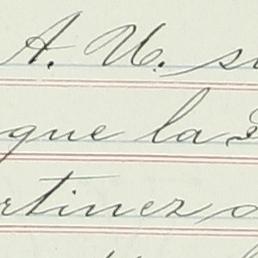 A. U. su
que la
rtinez